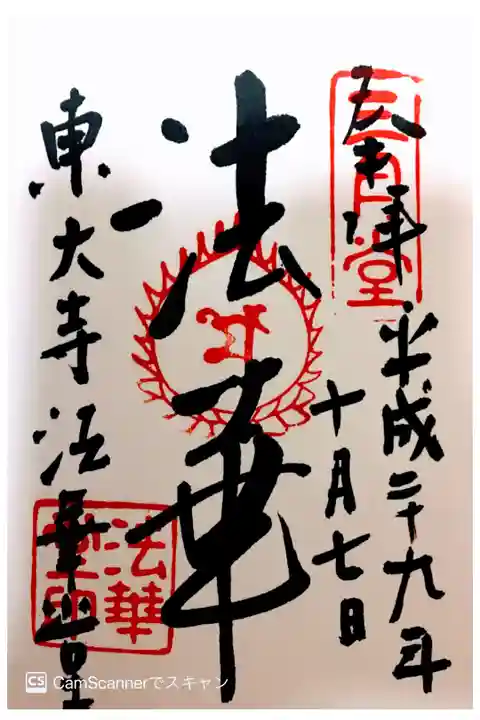 奉拝 平成二十九年
十月七日
三月堂
法華
東大寺 法華堂
法華堂印
CamScannerでスキャン